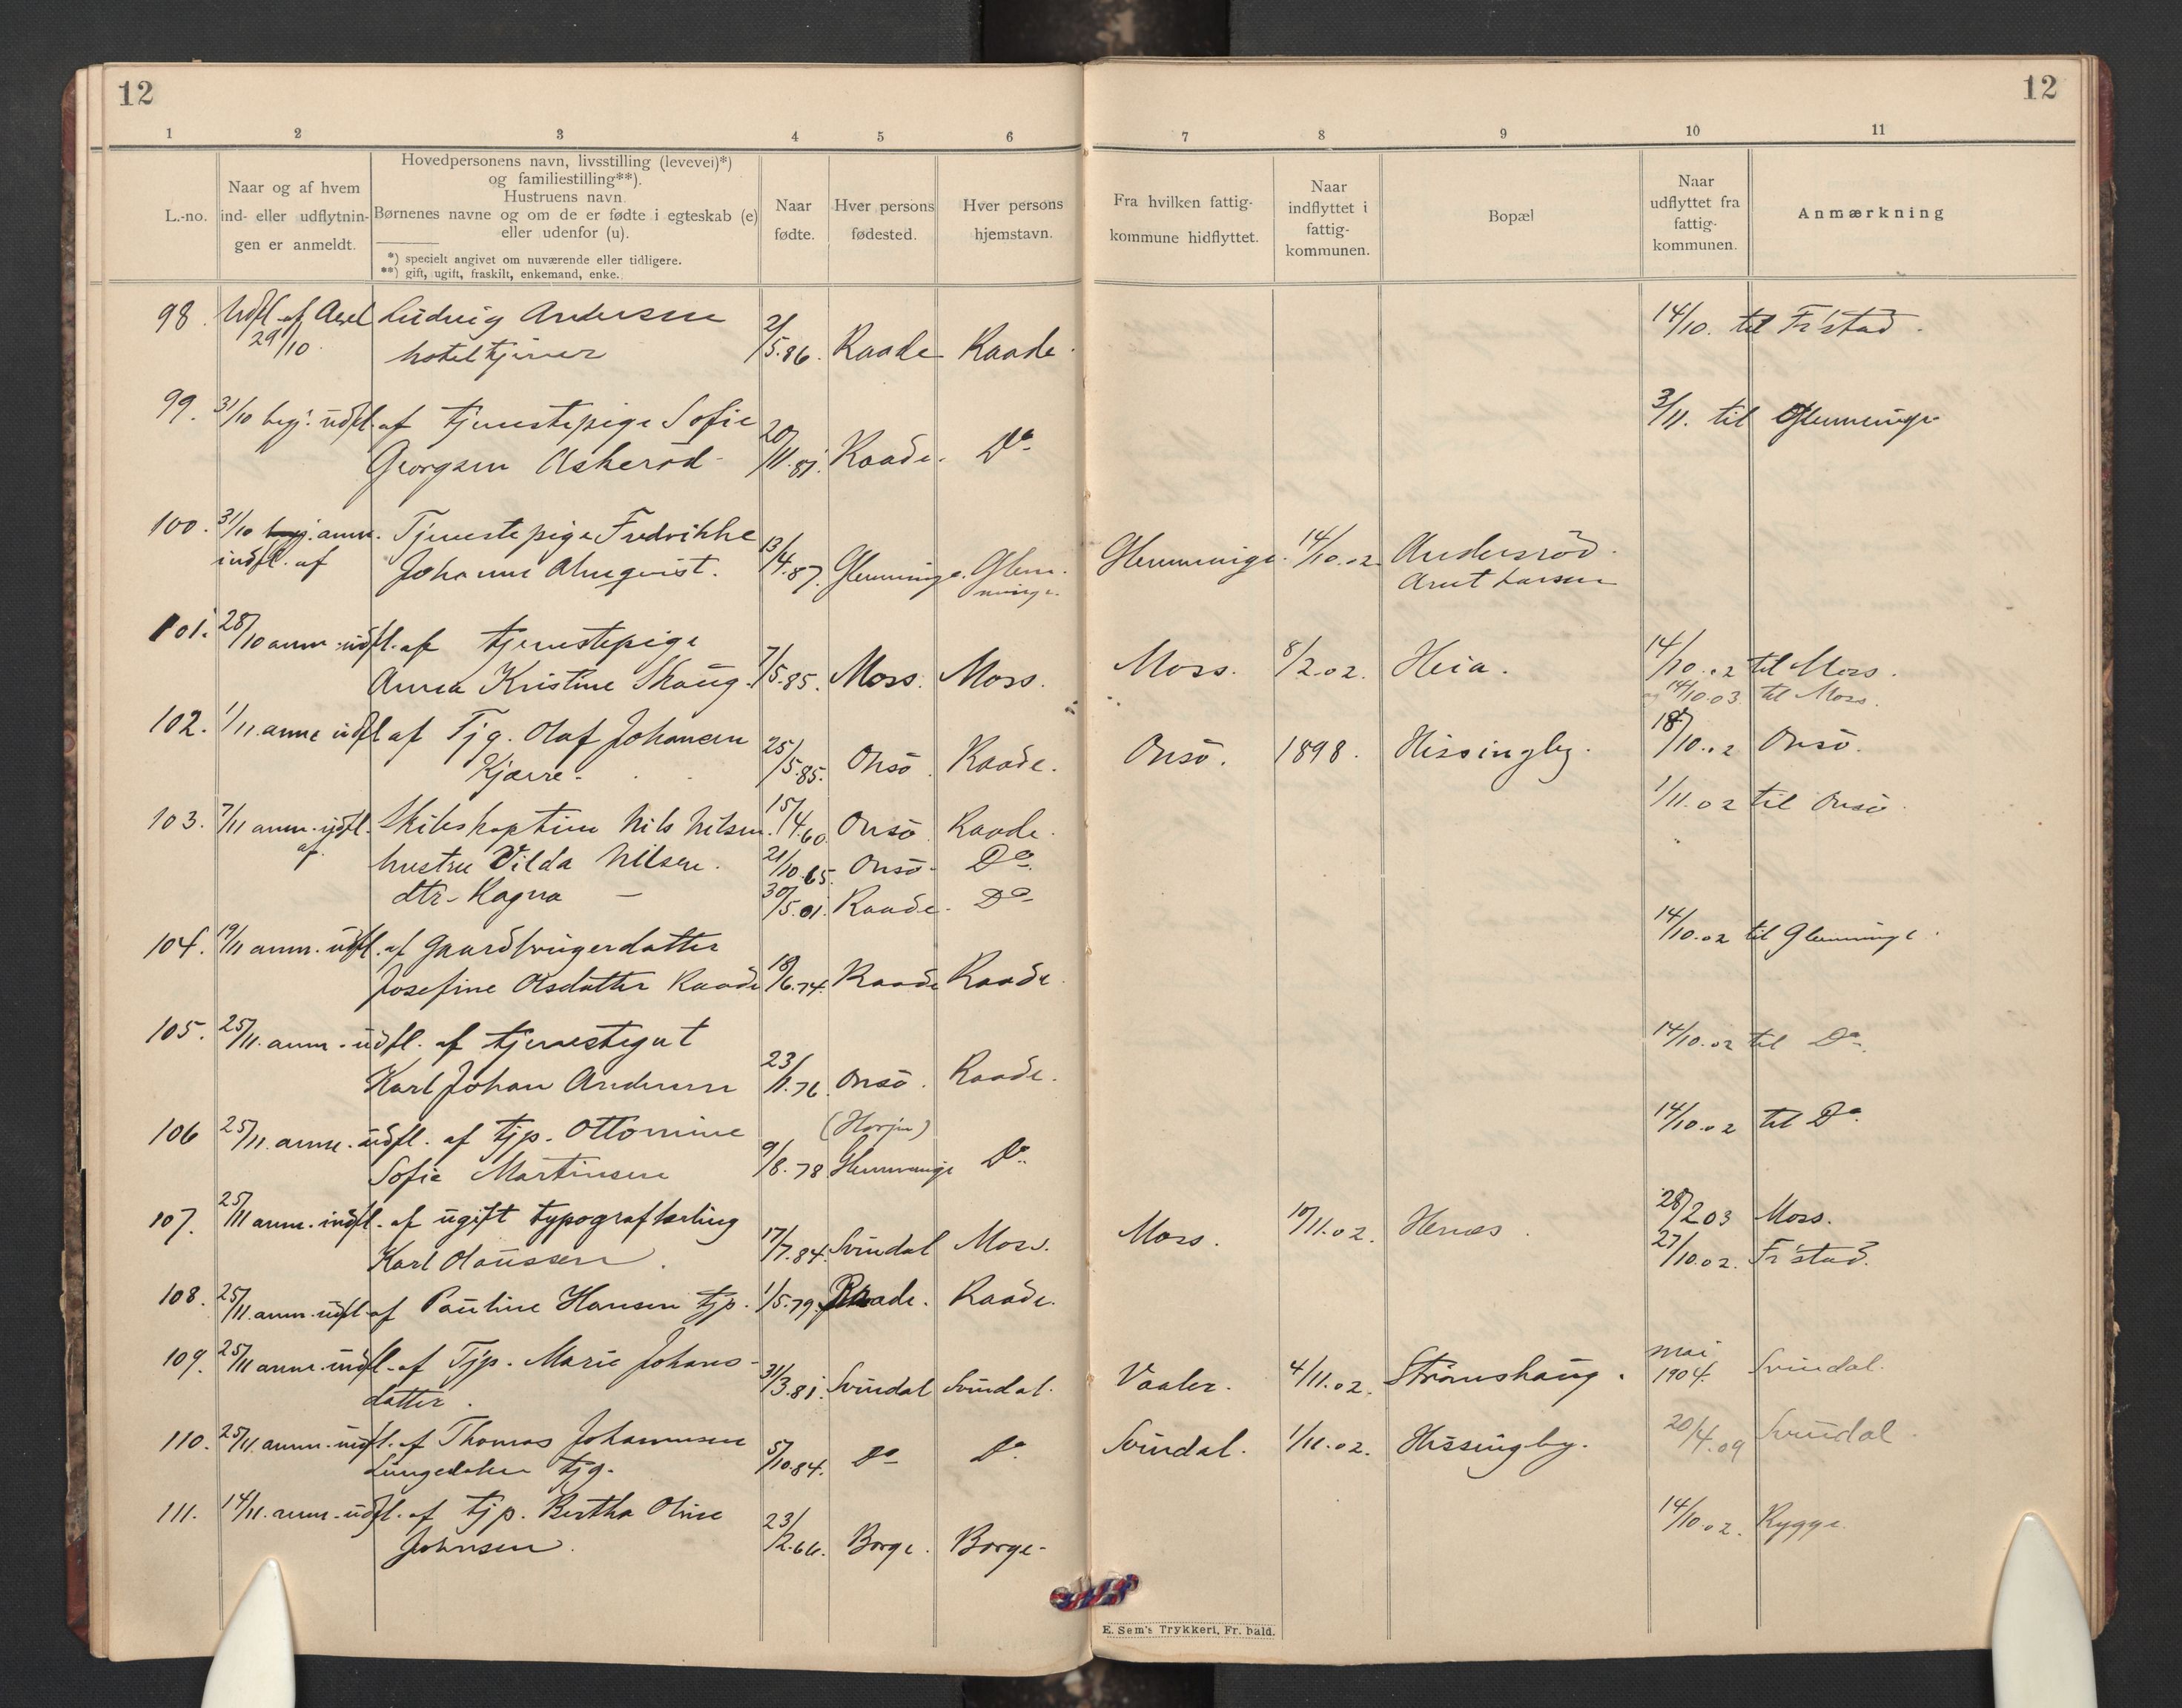 12
12
1 2 3 4 5 6 7 8 9 10 11
L.-no.
Naar og af hvem
ind- eller udflytnin-
gen er anmeldt.
Hovedpersonens navn, livsstilling (levevei)*)
og familiestilling**).
Hustruens navn.
Børnenes navne og om de er fødte i egteskab (e)
eller udenfor (u).
*) specielt angivet om nuværende eller tidligere.
**) gift, ugift, fraskilt, enkemand, enke.
Naar
fødte.
Hver persons
fødested.
Hver persons
hjemstavn.
Fra hvilken fattig-
kommune hidflyttet.
Naar
indflyttet i
fattig-
kommunen.
Bopæl
Naar
udflyttet fra
fattig-
kommunen.
Anmærkning
98. Udfl. af Axel Ludvig Andersen 14/10. til Fr'stad.
29/10 hoteltjener 2/5.86. Raade Raade.
99. 31/10 begj. udfl. af tjenestepige Sofie 3/11. til Glemminge
Georgsen Askerød 20/11.81. Raade. Do
100. 31/10 begj. anm. Tjenestepige Fredrikke
indfl. af Johanne Almqvist. 13/4.87. Glemminge. Glem- Glemminge. 14/10.02. Andersrød.
minge. Arnt Larsen
101. 28/10 anm. udfl. af tjenestepige
Anna Kristine Skaug. 7/5.85. Moss. Moss. Moss. 8/2.02. Heia. 14/10.02 til Moss.
14/10.03 til Moss.
102. 1/11. anm. udfl af Tjg. Olaf Johansen
Kjærre. 25/5.85. Onsö. Raade. Onsö. 1898. Hissingby. 18/10.02 Onsö.
103. 7/11 anm. udfl. Skibskaptein Nils Nilsen. 15/4.60 Onsö. Raade. 1/11.02 til Onsö
af. hustru Vilda Nilsen. 21/10.65. Onsö. Do.
dtr. Ragna — 30/5.01. Raade. Do
104. 19/11 anm. udfl. af gaardbrugerdatter 14/10.02 til Glemminge.
Josefine Olsdatter Raade 18/6.74. Raade Raade
105. 25/11. anm. udfl. af tjenestegut 14/10.02 til Do.
Karl Johan Andersen 23/11.76. Onsö. Raade.
106 25/11. anm. udfl. af tjp. Ottomine 14/10.02 til Do.
Sofie Martinsen 9/8.78 Glemminge Do.
107. 25/11 anm. indfl. af ugift typograflærling 28/2 03 Moss.
Karl Olaussen. 17/7.84. Svindal Moss. Moss. 10/11.02. Hernes.
108. 25/11. anm. udfl. af Pauline Hansen tjp. 1/5.79. Raade. Raade. 27/10.02. Fr'stad.
109. 25/11 anm. indfl. af Tjp. Marie Johans-
datter. 31/3.81. Svindal Svindal. Vaaler. 4/11.02. Strømshaug. mai
1904. Svindal.
110. 25/11. anm. indfl. af Thomas Johannesen
tjg. 5/10.84. Do Do. Svindal. 1/11.02. Hissingby. 20/4.09 Svindal.
111. 14/11. anm. udfl. af tjp. Bertha Oline
Johnsen. 23/2.66. Borge. Borge. 14/10.02. Rygge.
E. Sem's Trykkeri, Fr. hald.